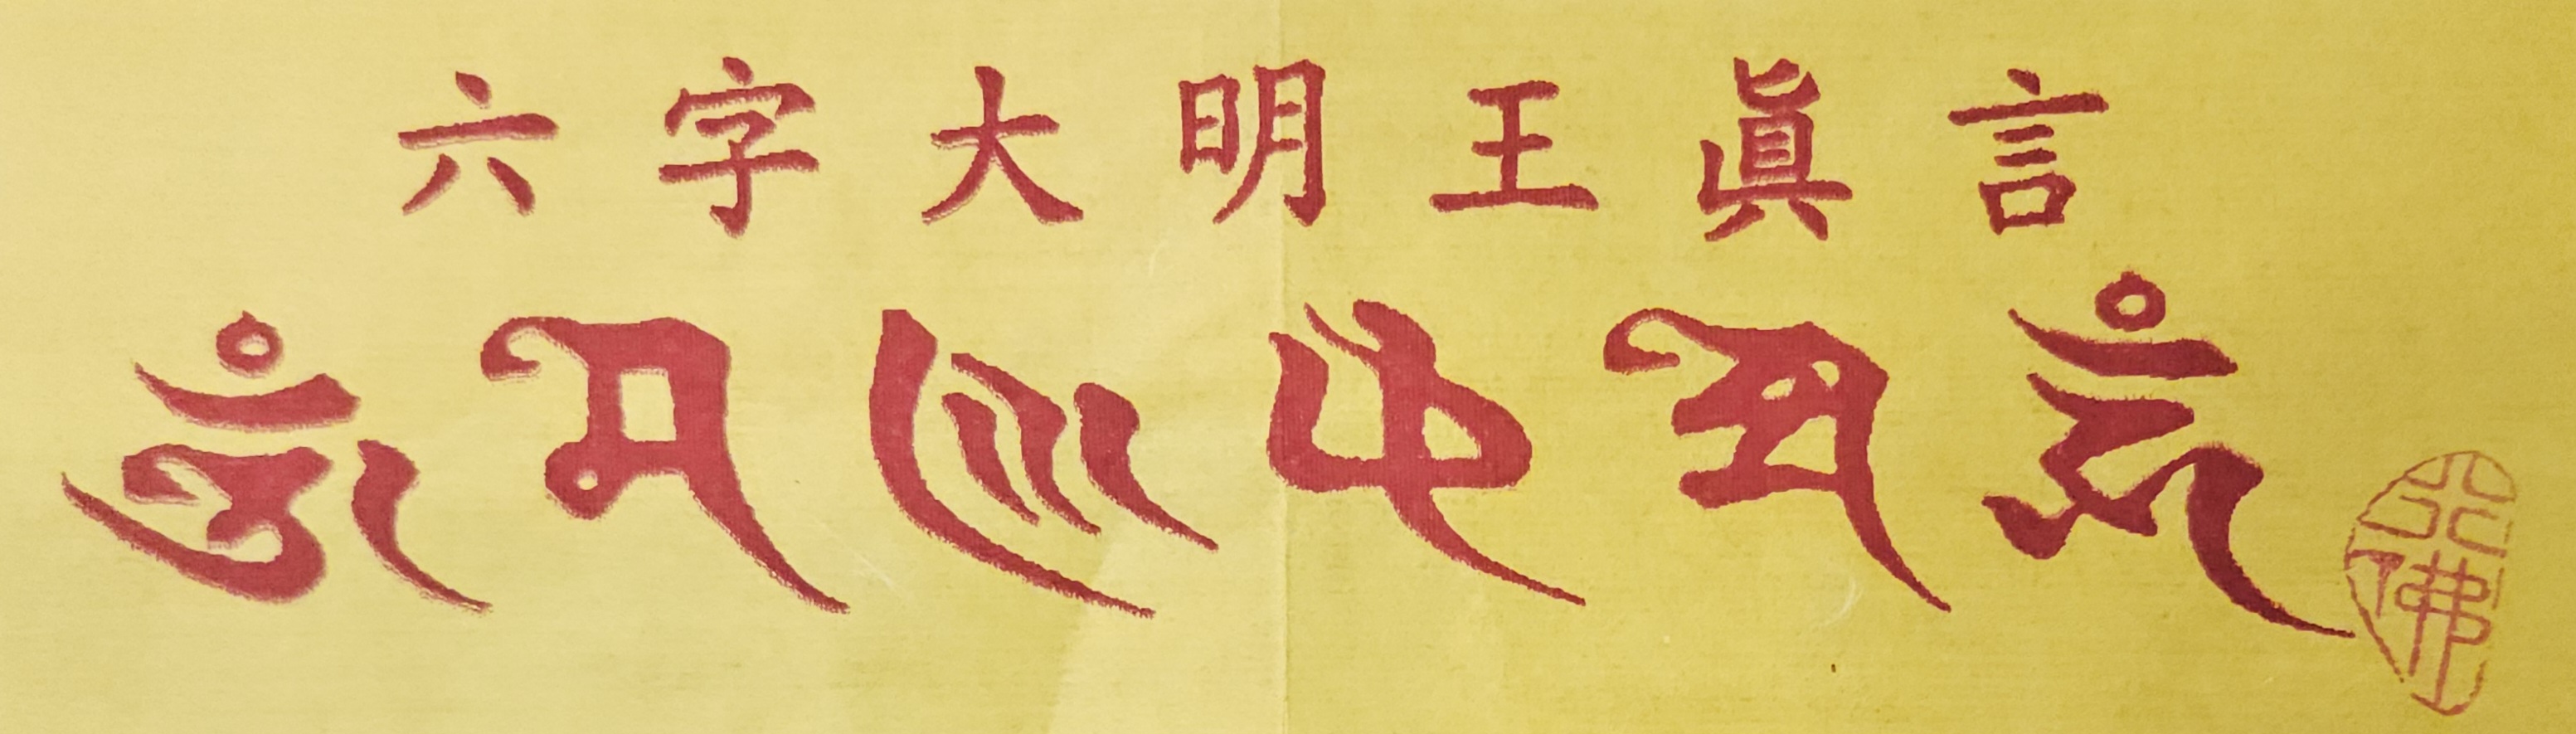 六字大明王眞言
𑖌𑖼 𑖦 𑖜𑖰 𑖢 𑖟𑖿𑖦𑖸 𑖮𑖳𑖽
佛